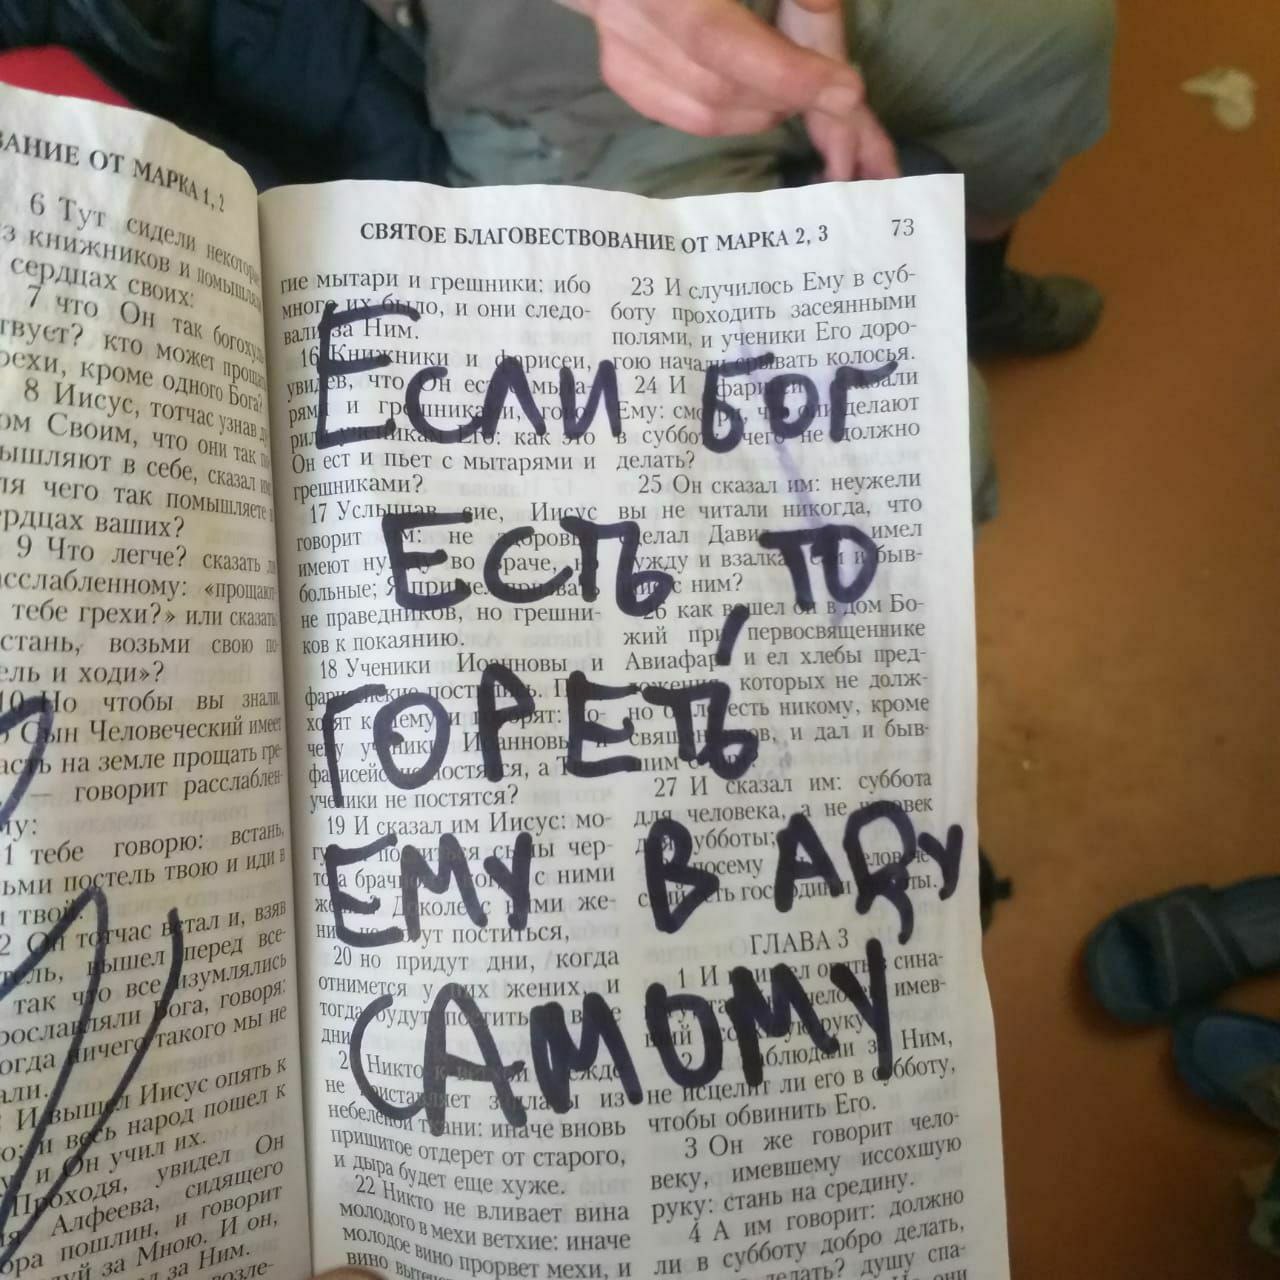 ВАНИЕ ОТ МАРКА 1, 2
6 Тут сидели
з книжников и
сердцах своих:
7 что Он так
твует? кто может
рехи, кроме одного Бога?
8 Иисус, тотчас узнав
ом Своим, что они так
ышляют в себе, сказал
ля чего так помышляете
ердцах ваших?
9 Что легче? сказать
асслабленному: «прощают-
тебе грехи?» или сказать
стань, возьми свою по-
ель и ходи»?
10 Но чтобы вы знали,
Сын Человеческий имеет
асть на земле прощать гре-
— говорит расслаблен-
му:
1 тебе говорю: встань,
ьми постель твою и иди в
твой.
2 Он тотчас встал и, взяв
тель, вышел перед все-
так что все изумлялись
рославляли Бога, говоря:
огда ничего такого мы не
али.
И вышел Иисус опять к
и весь народ пошел к
и Он учил их.
Проходя, увидел Он
Алфеева, сидящего
ора пошлин, и говорит
за Мною. И он,
за Ним.
СВЯТОЕ БЛАГОВЕСТВОВАНИЕ ОТ МАРКА 2, 3 73
гие мытари и грешники: ибо
много их было, и они следо-
вали за Ним.
16 Книжники и фарисеи,
увидев, что Он ест с мыта-
рями и грешниками, гово-
рили ученикам Его: как это
Он ест и пьет с мытарями и
грешниками?
17 Услышав сие, Иисус
говорит им: не здоровые
имеют нужду во враче, но
больные; Я пришел призвать
не праведников, но грешни-
ков к покаянию.
18 Ученики Иоанновы и
фарисейские постились.
ходят к Нему и говорят: по-
чему ученики Иоанновы и
фарисейские постятся, а
ученики не постятся?
19 И сказал им Иисус: мо-
гут поститься сыны чер-
тога брачного, когда с ними
жених? Доколе с ними же-
них, не могут поститься,
20 но придут дни, когда
отнимется у них жених, и
тогда будут поститься в
дни
Никто к ветхой одежде
не приставляет заплаты из
небеленой ткани: иначе вновь
пришитое отдерет от старого,
и дыра будет еще хуже.
22 Никто не вливает вина
молодого в мехи ветхие: иначе
молодое вино прорвет мехи, и
вино
23 И случилось Ему в суб-
боту проходить засеянными
полями, и ученики Его доро-
гою начали срывать колосья.
24 И фарисеи сказали
Ему: смотри, что они делают
в субботу, чего не должно
делать?
25 Он сказал им: неужели
вы не читали никогда, что
сделал Давид, имел
нужду и взалкал сам и быв-
шие с ним?
26 как вошел он в дом Бо-
жий при первосвященнике
Авиафаре и ел хлебы пред-
ложения, которых не долж-
но было есть никому, кроме
священников, и дал и быв-
шим с ним?
27 И сказал им: суббота
для человека, а не человек
для субботы;
посему Сын Человече-
ский есть господин и субботы.
ГЛАВА 3
1 И пришел опять в сина-
гогу; там был человек, имев-
ший иссохшую руку.
2 И наблюдали за Ним,
не исцелит ли его в субботу,
чтобы обвинить Его.
3 Он же говорит чело-
веку, имевшему иссохшую
руку: стань на средину.
4 А им говорит: должно
ли в субботу добро делать,
делать? душу спа-
они
ЕСЛИ БОГ
ЕСТЬ, ТО
ГОРЕТЬ
ЕМУ В АДУ
САМОМУ